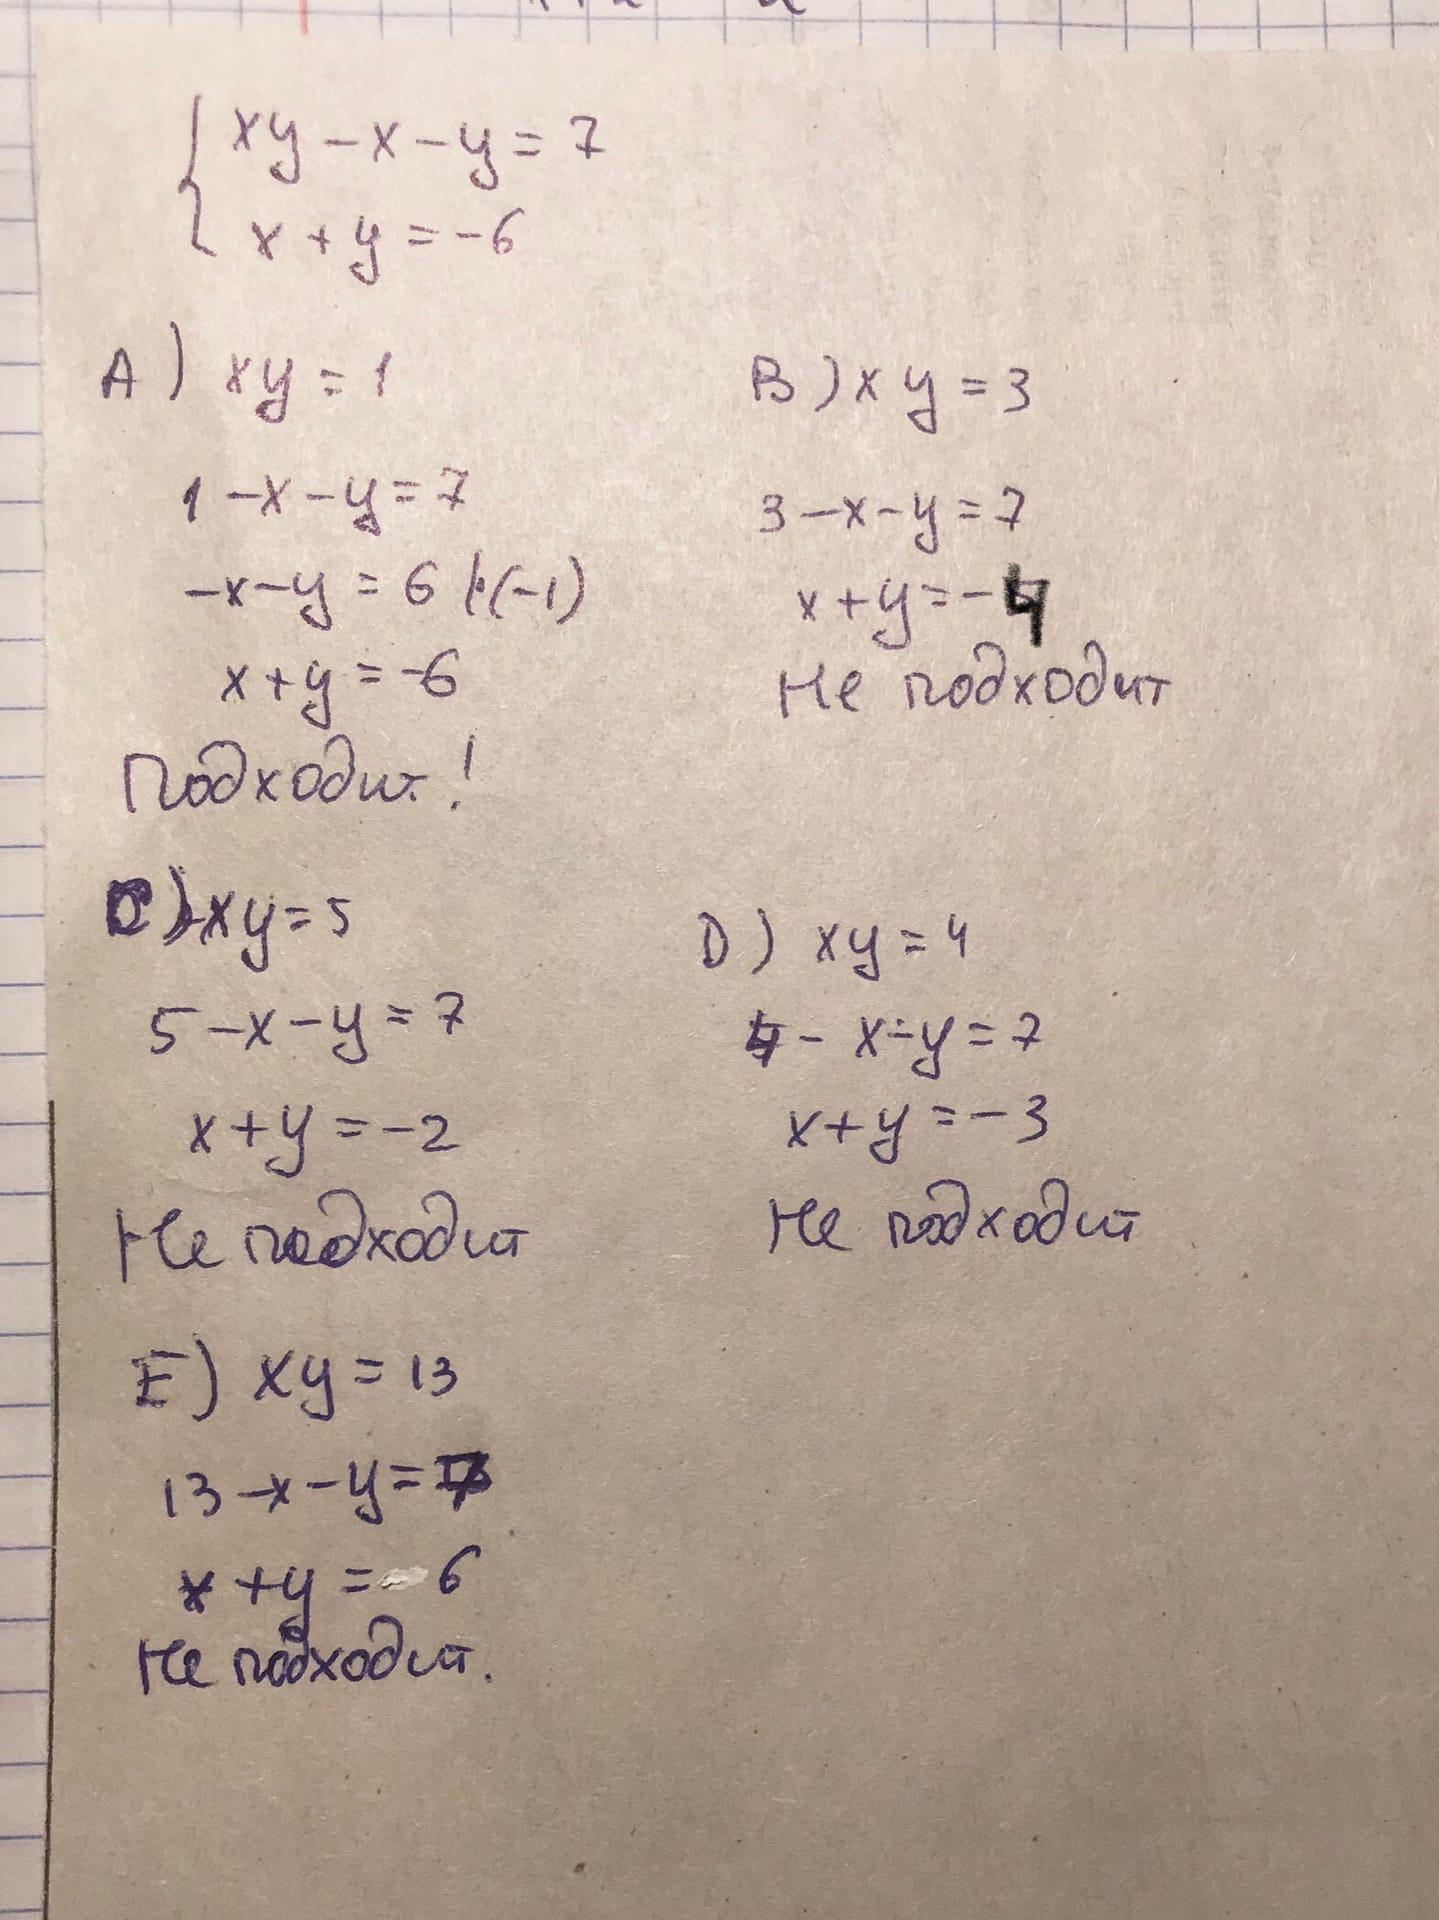 xy - x - y = 7
x + y = -6
A) xy = 1
1 - x - y = 7
-x - y = 6 |·(-1)
x + y = -6
Подходит!
B) xy = 3
3 - x - y = 7
x + y = -4
Не подходит
C) xy = 5
5 - x - y = 7
x + y = -2
Не подходит
D) xy = 4
4 - x - y = 7
x + y = -3
Не подходит
E) xy = 13
13 - x - y = 7
x + y = 6
Не подходит.